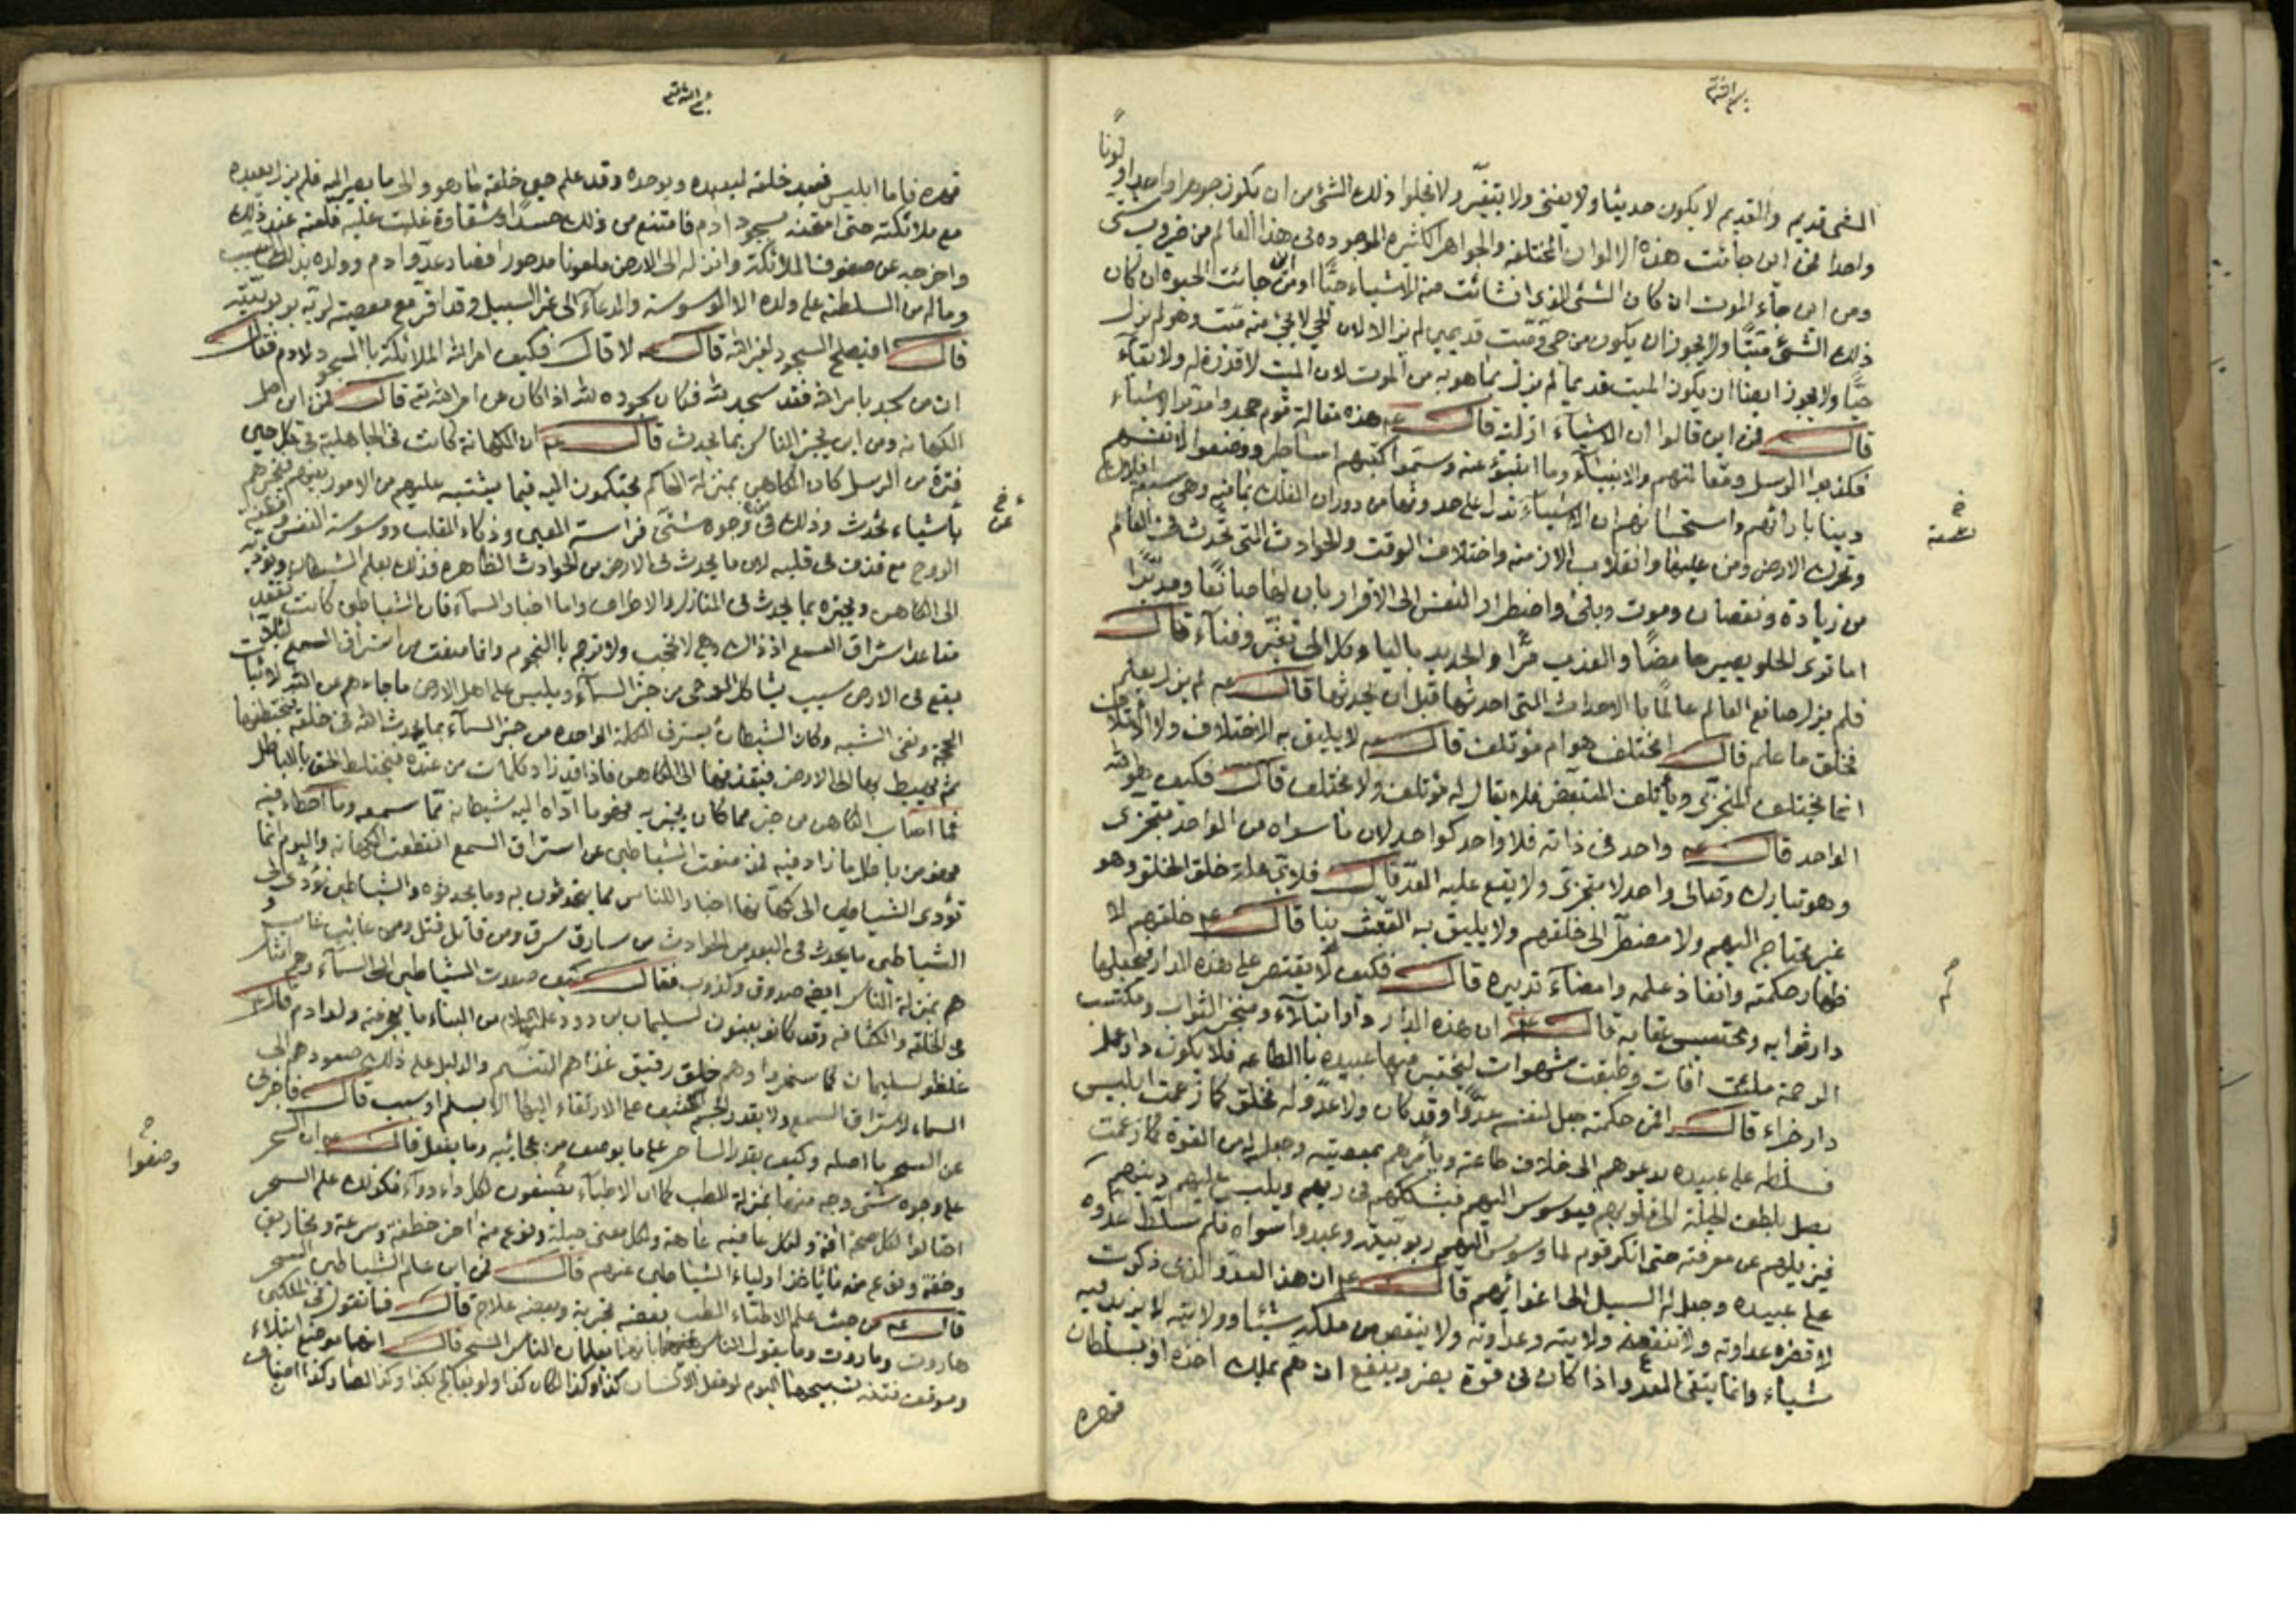 الشئ قديم والقديم لا يكون حديثا ولا يفنى ولا يتغير ولا يخلوا ذلك الشئ من ان يكون جوهرا واحدا ولونا
واحدا فمن اين جائت هذه الالوان المختلفة والجواهر الكثيرة الموجودة فى هذا العالم من ضروب شتى
ومن اين جاء الموت ان كان الشئ الذى انشائت منه الاشياء حيا او من اين جائت الحيوة ان كان
ذلك الشئ ميتا ولا يجوز ان يكون من حى وميت قديمين لم يزالا لان الحى لا يجئ منه ميت وهو لم يزل
حيا ولا يجوز ايضا ان يكون الميت قديما لم يزل بما هو به من الموت لان الميت لا قدرة له ولا بقاء
قال فمن اين قالوا ان الاشياء ازلية قال ع هذه مقالة قوم جحدوا مدبر الاشياء
فكذبوا الرسل ومقالتهم والانبياء وما انبئوا عنه وسموا كتبهم اساطير ووضعوا لانفسهم
دينا بارائهم واستحسانهم ان الاشياء تدل على حدوثها من دوران الفلك بما فيه وهى سبعة افلاك
وتحرك الارض ومن عليها وانقلاب الازمنة واختلاف الوقت والحوادث التى تحدث فى العالم
من زيادة ونقصان وموت وبلى واضطرار النفس الى الاقرار بان لها صانعا ومدبرا
اما ترى الحلو يصير حامضا والعذب مرا والجديد باليا وكل الى تغير وفناء قال
فلم يزل صانع العالم عالما بالاحداث التى احدثها قبل ان يحدثها قال ع لم يزل يعلم
فخلق ما علم قال امختلف هو ام مؤتلف قال ع لا يليق به الاختلاف ولا الائتلاف
انما يختلف المتجزى ويأتلف المتبعض فلا يقال له مؤتلف ولا مختلف قال فكيف هو الله
الواحد قال ع واحد فى ذاته فلا واحد كواحد لان ما سواه من الواحد متجزى
وهو تبارك وتعالى واحد لا متجزى ولا يقع عليه العد قال فلاى علة خلق الخلق وهو
غير محتاج اليهم ولا مضطر الى خلقهم ولا يليق به التعبث بنا قال ع خلقهم لا
ظهار حكمته وانفاذ علمه وامضاء تدبيره قال فكيف لا يقتصر على هذه الدار فيجعلها
دار ثوابه ومحتبس عقابه قال ع ان هذه الدار دار ابتلاء ومتجر الثواب ومكتسب
الرحمة ملئت افات وطبقت شهوات ليختبر فيها عبيده بالطاعة فلا يكون دار عمل
دار جزاء قال افمن حكمته جعل لنفسه عدوا وقد كان ولا عدو له فخلق كما زعمت ابليس
فسلطه على عبيده يدعوهم الى خلاف طاعته ويأمرهم بمعصيته وجعل له من القوة كما زعمت
يصل بلطف الحيلة الى قلوبهم فيوسوس اليهم فيشككهم فى ربهم ويلبس عليهم دينهم
فيزيلهم عن معرفته حتى انكر قوم لما وسوس اليهم ربوبيته وعبدوا سواه فلم سلط عدوه
على عبيده وجعل له السبيل الى اغوائهم قال ع ان هذا العدو الذى ذكرت
لا تضره عداوته ولا تنفعه ولايته وعداوته ولا ينقص من ملكه شيئا وولايته لا يزيد فيه
شيأ وانما يتقى العدو اذا كان فى قوة يضر وينفع ان هم بملك اخذه او بسلطان
قهره
قهره فاما ابليس فعبد خلقه ليعبده ويوحده وقد علم حين خلقه ما هو والى ما يصير اليه فلم يزل يعبده
مع ملائكته حتى امتحنه بسجود ادم فامتنع من ذلك حسدا وشقاوة غلبت عليه فلعنه عند ذلك
واخرجه عن صفوف الملائكة وانزله الى الارض ملعونا مدحورا فصار عدو ادم وولده بذلك السبب
وماله من السلطنة على ولده الا الوسوسة والدعاء الى غير السبيل وقد اقر مع معصيته لربه بربوبيته
قال افيصلح السجود لغير الله قال ع لا قال فكيف امر الله الملائكة بالسجود لادم فقال
ان من سجد بامر الله فقد سجد لله فكان سجوده لله اذا كان عن امر الله تع قال فمن اين اصل
الكهانة ومن اين يخبر الناس بما يحدث قال ع ان الكهانة كانت فى الجاهلية فى كل حين
فترة من الرسل كان الكاهن بمنزلة الحاكم يحتكمون اليه فيما يشتبه عليهم من الامور بينهم فيخبرهم
باشياء تحدث وذلك فى وجوه شتى فراسة العين وذكاء القلب ووسوسة النفس وفطنة
الروح مع قذف فى قلبه لان ما يحدث فى الارض من الحوادث الظاهرة فذلك يعلم الشيطان ويؤديه
الى الكاهن ويخبره بما يحدث فى المنازل والاطراف واما اخبار السماء فان الشياطين كانت تقعد
مقاعد استراق السمع اذ ذاك وهى لا تحجب ولا ترجم بالنجوم وانما منعت من استراق السمع لئلا
يقع فى الارض سبب يشاكل الوحى من خبر السماء ويلبس على اهل الارض ما جاءهم عن الله لاثبات
الحجة ونفى الشبه وكان الشيطان يسترق الكلمة الواحدة من خبر السماء بما يحدث الله فى خلقه فيختطفها
ثم يهبط بها الى الارض فيقذفها الى الكاهن فاذا قد زاد كلمات من عنده فيختلط الحق بالباطل
فما اصاب الكاهن من خبر مما كان يخبر به فهو ما اداه اليه شيطانه مما سمعه وما اخطأ فيه
فهو من باطل ما زاد فيه فمذ منعت الشياطين عن استراق السمع انقطعت الكهانة واليوم انما
تؤدى الشياطين الى كهانها اخبارا للناس مما يتحدثون به وما يحدثوه والشياطين تؤدى الى
الشياطين ما يحدث فى البعد من الحوادث من سارق سرق ومن قاتل قتل ومن غائب غاب
هم بمنزلة الناس ايضا صدوق وكذوب فقال كيف صعدت الشياطين الى السماء وهم امثال
فى الخلقة والكثافة وقد كانوا يبنون لسليمان بن داود من البناء ما يعجز عنه ولد ادم قال
غلظوا لسليمان كما سخروا وهم خلق رقيق غذاهم التنسم والدليل على ذلك صعودهم الى
السماء لاستراق السمع ولا يقدر الجسم الكثيف على الارتقاء اليها الا بسلم او سبب قال فاخبرنى
عن السحر ما اصله وكيف يقدر الساحر على ما يوصف من عجائبه وما يفعل قال ع ان السحر
على وجوه شتى وجه منها بمنزلة الطب كما ان الاطباء وضعوا لكل داء دواء فكذلك علم السحر
احتالوا لكل صحة افة ولكل عافية عاهة ولكل معنى حيلة ونوع منه اخر خطفة وسرعة ومخاريق
وخفة ونوع منه ما يأخذ اولياء الشياطين عنهم قال فمن اين علم الشياطين السحر
قال ع من حيث علم الاطباء الطب بعضه تجربة وبعضه علاج قال فما تقول فى الملكين
هاروت وماروت وما يقول الناس بانهما يعلمان الناس السحر قال انهما موضع ابتلاء
وموقف فتنة تسبيحهما اليوم لو فعل الانسان كذا وكذا لكان كذا ولو يعالج بكذا وكذا لصار كذا
وصفوا